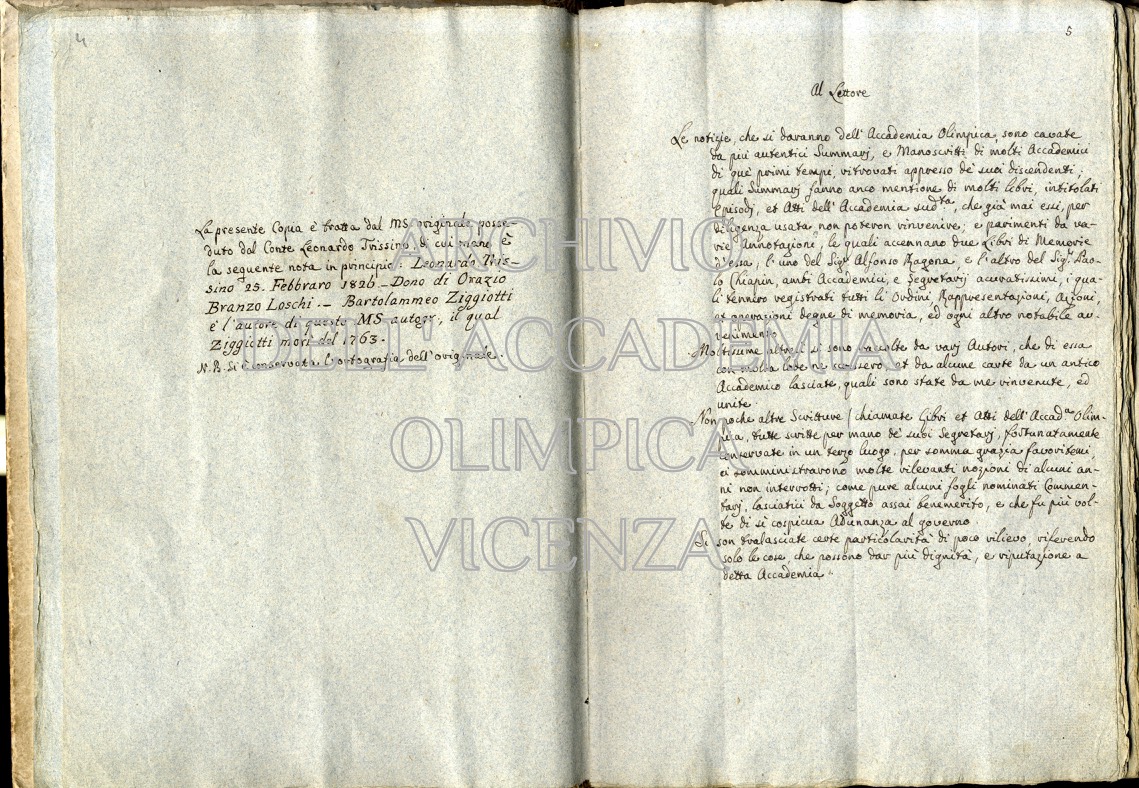 4
La presente Copia è tratta dal MS. originale posse-
duto dal Conte Leonardo Trissino, di cui mano è
la seguente nota in principio: Leonardo Tris-
sino 25. Febbraro 1826 - Dono di Orazio
Branzo Loschi. - Bartolammeo Ziggiotti
è l'autore di questo MS autogr., il qual
Ziggiotti morì del 1763.
N.B. Si è conservata l'ortografia dell'originale.
5
Al Lettore
Le notizie, che si daranno dell'Accademia Olimpica, sono cavate
da più autentici Summarj, e Manoscritti di molti Accademici
di que' primi tempi, ritrovati appresso de' suoi discendenti;
quali Summarj fanno anco mentione di molti libri, intitolati
Episodj, et Atti dell'Accademia sudta, che già mai essi, per
diligenza usata, non poteron rinvenire; e parimenti da va-
rie Annotazioni, le quali accennano due Libri di Memorie
d'essa, l'uno del Sigr Alfonso Ragona, e l'altro del Sigr Pao-
lo Chiapin, ambi Accademici, e Segretarij accuratissimi, i qua-
li tennero registrati tutti li Ordini, Rappresentazioni, Azioni,
et operazioni degne di memoria, ed ogni altro notabile av-
venimento.
Moltissime altresì si sono raccolte da varj Autori, che di essa
con molta lode ne scrissero, et da alcune carte da un antico
Accademico lasciate, quali sono state da me rinvenute, ed
unite.
Non poche altre Scritture (chiamate Libri et Atti dell'Accada Olim-
pica, tutte scritte per mano de' suoi Segretarj, fortunatamente
conservate in un terzo luogo, per somma grazia favoritemi,
ci somministrarono molte rilevanti nozioni di alcuni an-
ni non interrotti; come pure alcuni fogli nominati Commen-
tarj, lasciatici da Soggetto assai benemerito, e che fu più vol-
te di sì cospicua Adunanza al governo.
Si son tralasciate certe particolarità di poco rilievo, riferendo
solo le cose, che possono dar più dignità, e riputazione a
detta Accademia.
ARCHIVIO
DELL'ACCADEMIA
OLIMPICA
VICENZA